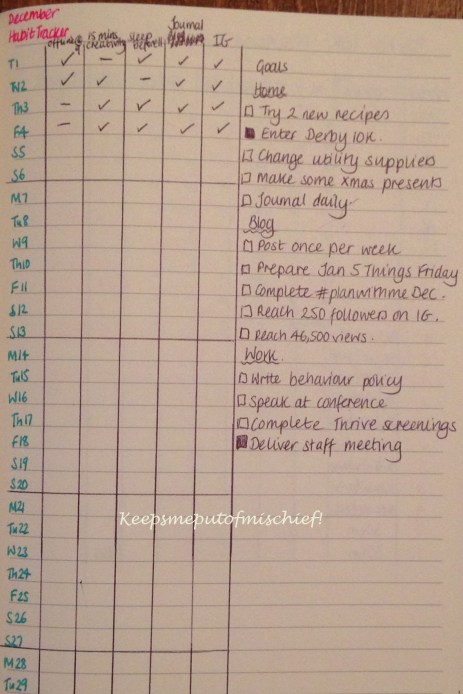 December
Habit Tracker
offline @ 9
15 mins creativity
sleep before 11
Journal
IG
T1 ✓ – ✓ ✓ ✓
W2 ✓ ✓ – ✓ ✓
Th3 – ✓ ✓ ✓ ✓
F4 – ✓ ✓ ✓ ✓
S5
S6
M7
Tu8
W9
Th10
F11
S12
S13
M14
Tu15
W16
Th17
F18
S19
S20
M21
Tu22
W23
Th24
F25
S26
S27
M28
Tu29
Goals
Home
Try 2 new recipes
Enter Derby 10K.
Change utility supplies
Make some xmas presents
Journal daily
Blog
Post once per week
Prepare Jan 5 Things Friday
Complete #planwithme Dec.
Reach 250 followers on IG.
Reach 46,500 views.
Work.
Write behaviour policy
Speak at conference
Complete Thrive screenings
Deliver staff meeting
Keepsmeputofmischief!